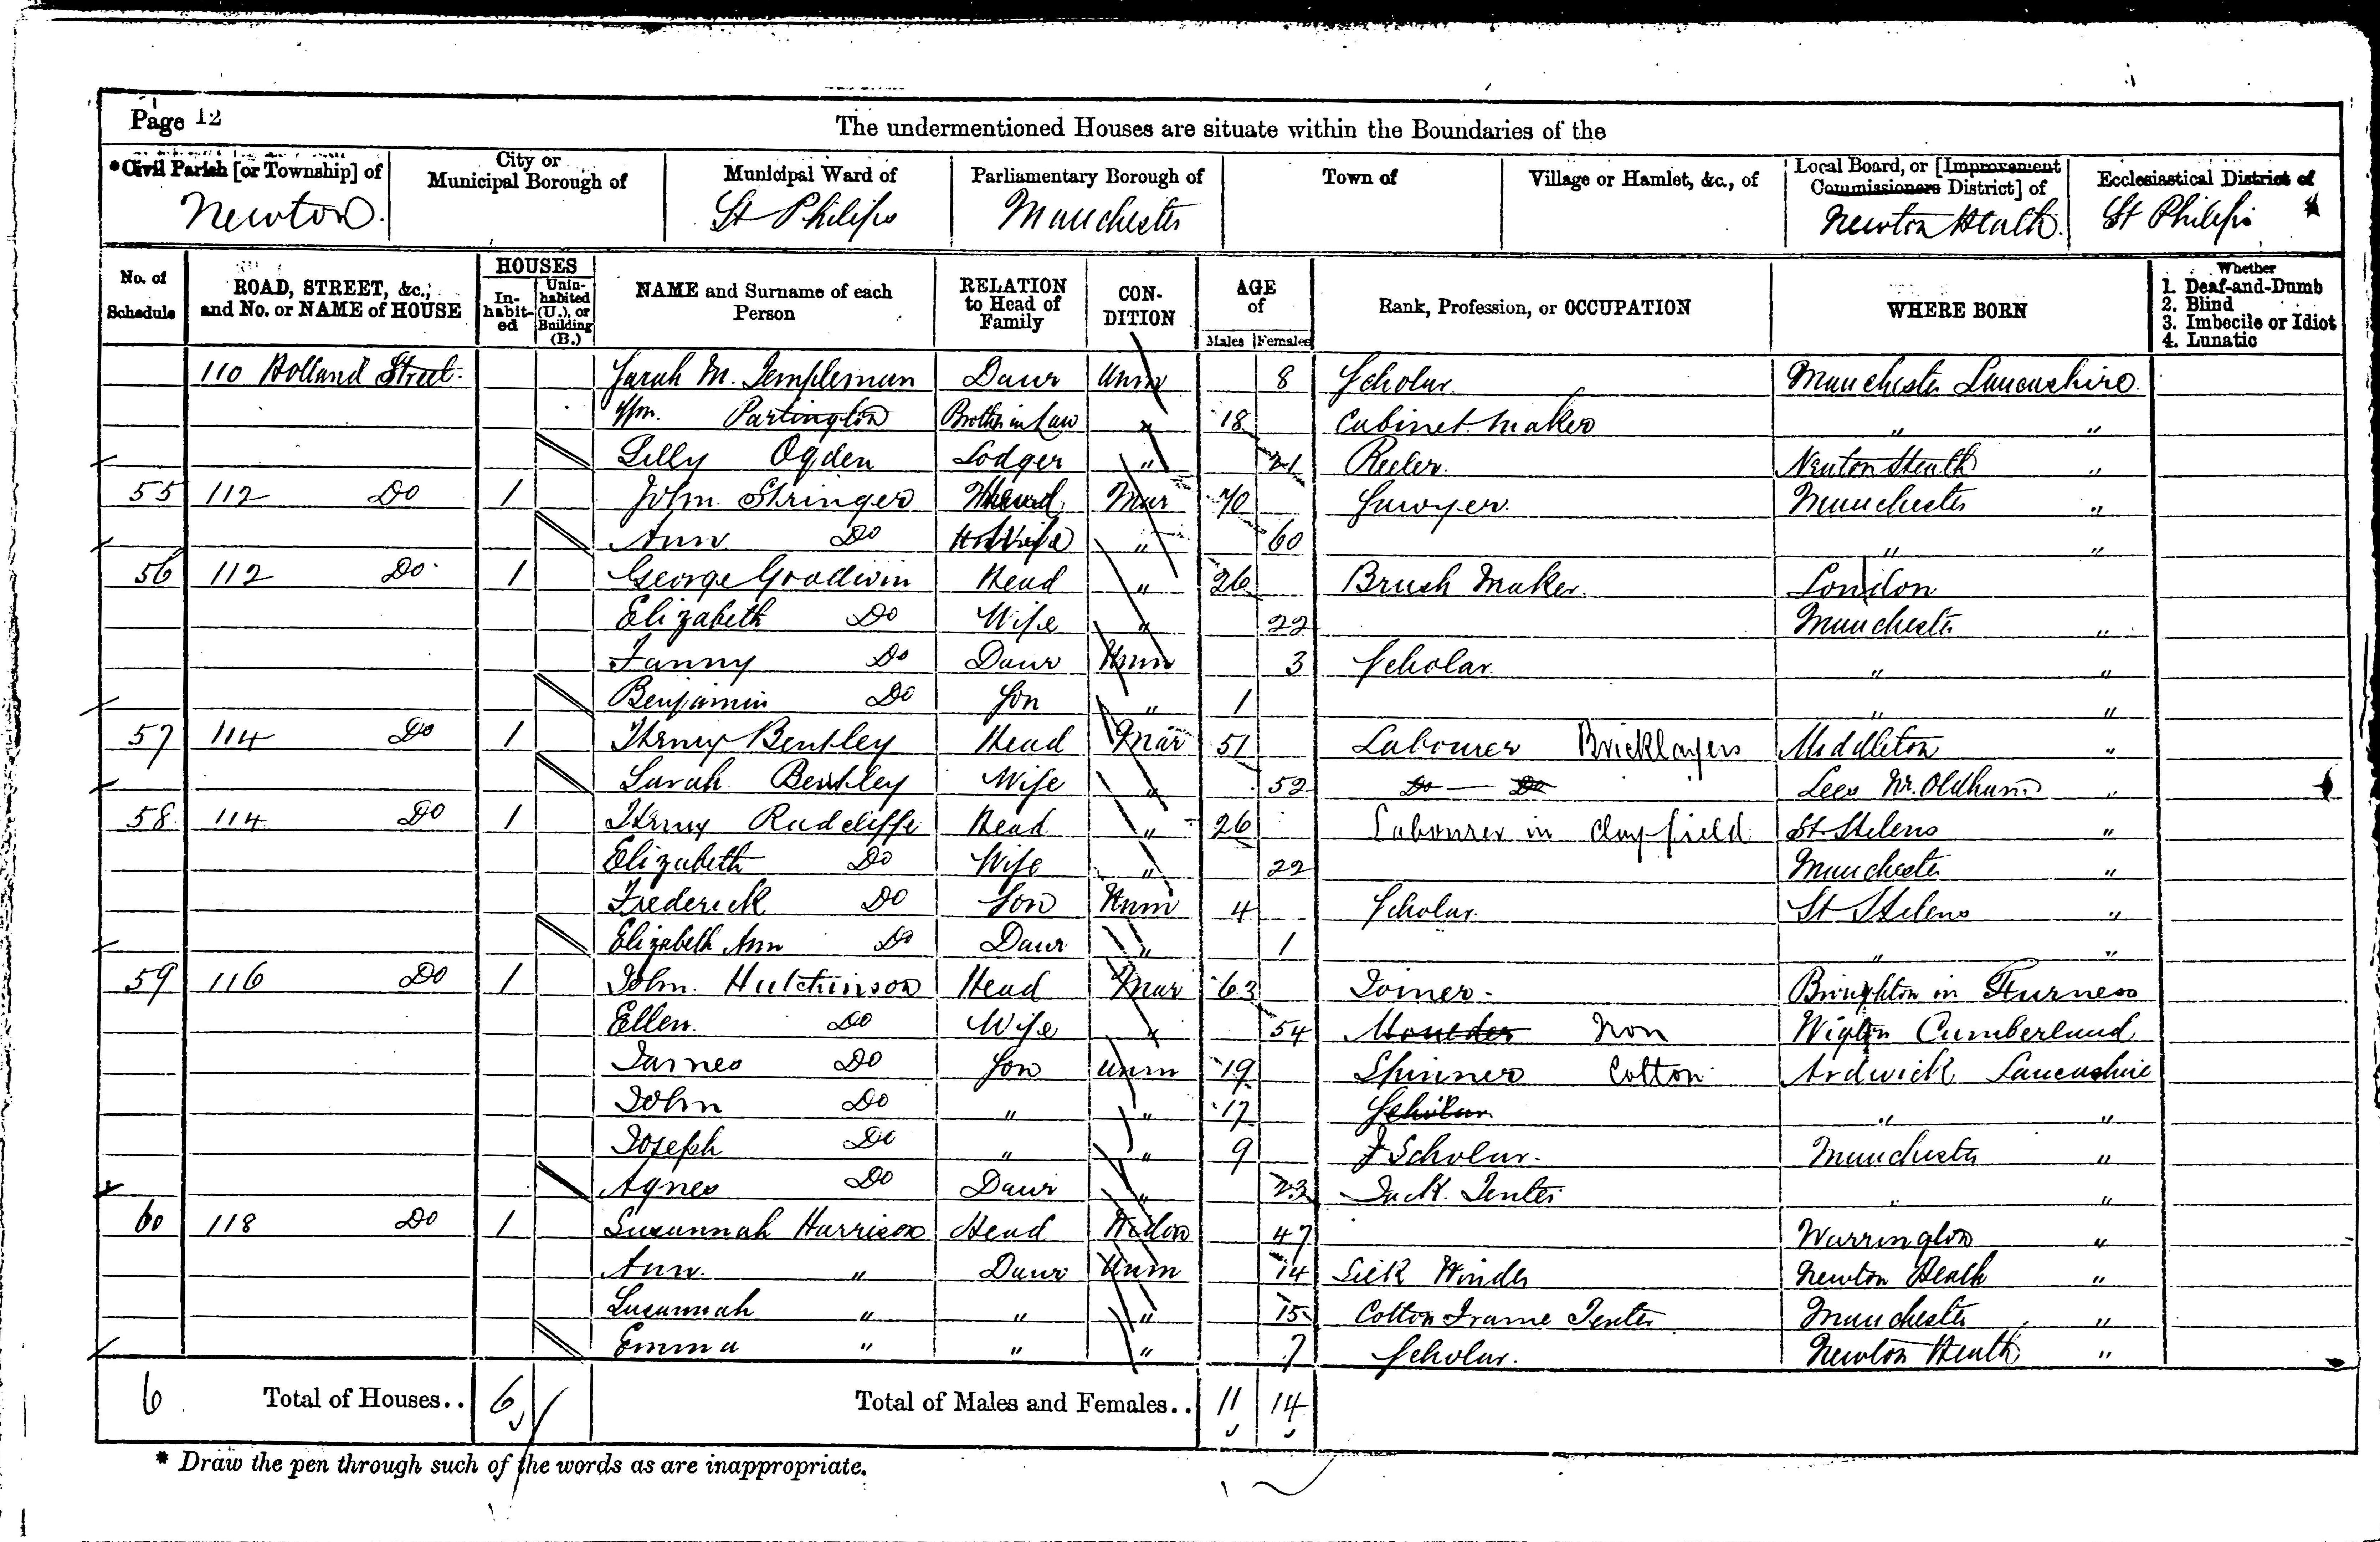 Page 12
The undermentioned Houses are situate within the Boundaries of the
*Civil Parish [or Township] of
Newton
City or Municipal Borough of
Municipal Ward of
St Philips
Parliamentary Borough of
Manchester
Town of
Village or Hamlet, &c., of
Local Board, or [Improvement Commissioners District] of
Newton Heath
Ecclesiastical District of
St Philips
No. of Schedule
ROAD, STREET, &c., and No. or NAME of HOUSE
HOUSES
In-habit-ed
Unin-habited (U.), or Building (B.)
NAME and Surname of each Person
RELATION to Head of Family
CON-DITION
AGE of
Males Females
Rank, Profession, or OCCUPATION
WHERE BORN
Whether
1. Deaf-and-Dumb
2. Blind
3. Imbecile or Idiot
4. Lunatic
110 Holland Street Sarah M. Templeman Daur Unm 8 Scholar Manchester Lancashire
Wm. Partington Brother in Law " 18 Cabinet Maker " "
Lilly Ogden Lodger " 21 Reeler Newton Heath "
55 112 Do 1 John Stringer Head Mar 70 Sawyer Manchester "
Ann Do Wife " 60 " "
56 112 Do 1 George Goodwin Head " 26 Brush Maker London
Elizabeth Do Wife " 22 Manchester "
Fanny Do Daur Unm 3 Scholar " "
Benjamin Do Son " 1 " "
57 114 Do 1 Henry Bentley Head Mar 51 Labourer Bricklayers Middleton "
Sarah Bentley Wife " 52 Do — Do Lees Nr. Oldham "
58 114 Do 1 Henry Radcliffe Head " 26 Labourer in Clay field St Helens "
Elizabeth Do Wife " 22 Manchester "
Frederick Do Son Unm 4 Scholar St Helens "
Elizabeth Ann Do Daur " 1 " "
59 116 Do 1 John Hutchinson Head Mar 63 Joiner Broughton in Furness
Ellen Do Wife " 54 Moulder Iron Wigton Cumberland
James Do Son Unm 19 Spinner Cotton Ardwick Lancashire
John Do " " 17 Scholar " "
Joseph Do " " 9 Scholar Manchester "
Agnes Do Daur " 23 Jack Tenter " "
60 118 Do 1 Susannah Harrison Head Widow 47 Warrington "
Ann " Daur Unm 14 Silk Winder Newton Heath "
Susannah " " " 15 Cotton Frame Tenter Manchester "
Emma " " " 7 Scholar Newton Heath "
6 Total of Houses.. 6 Total of Males and Females.. 11 14
* Draw the pen through such of the words as are inappropriate.